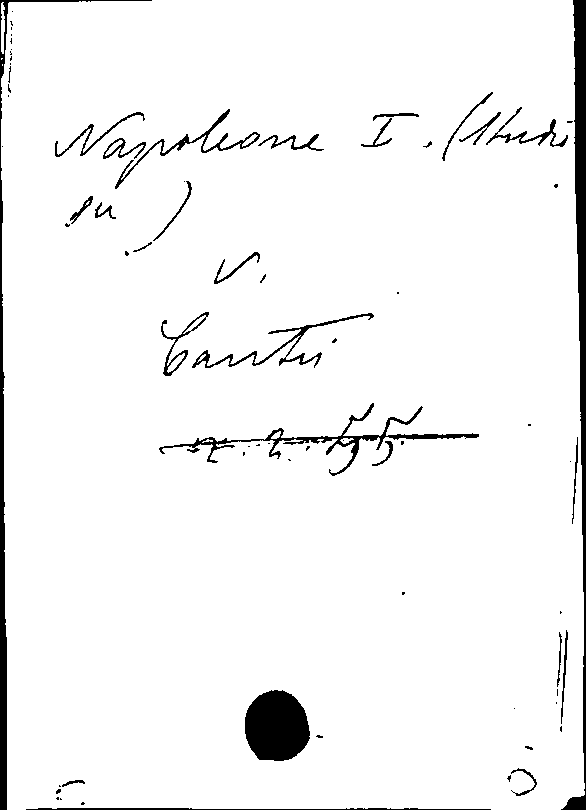 Napoleone I. (Studi
su )
v.
Cantù